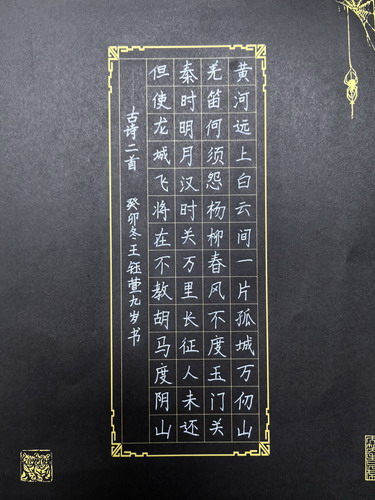 黄河远上白云间一片孤城万仞山
羌笛何须怨杨柳春风不度玉门关
秦时明月汉时关万里长征人未还
但使龙城飞将在不教胡马度阴山
古诗二首 癸卯冬王钰萱九岁书